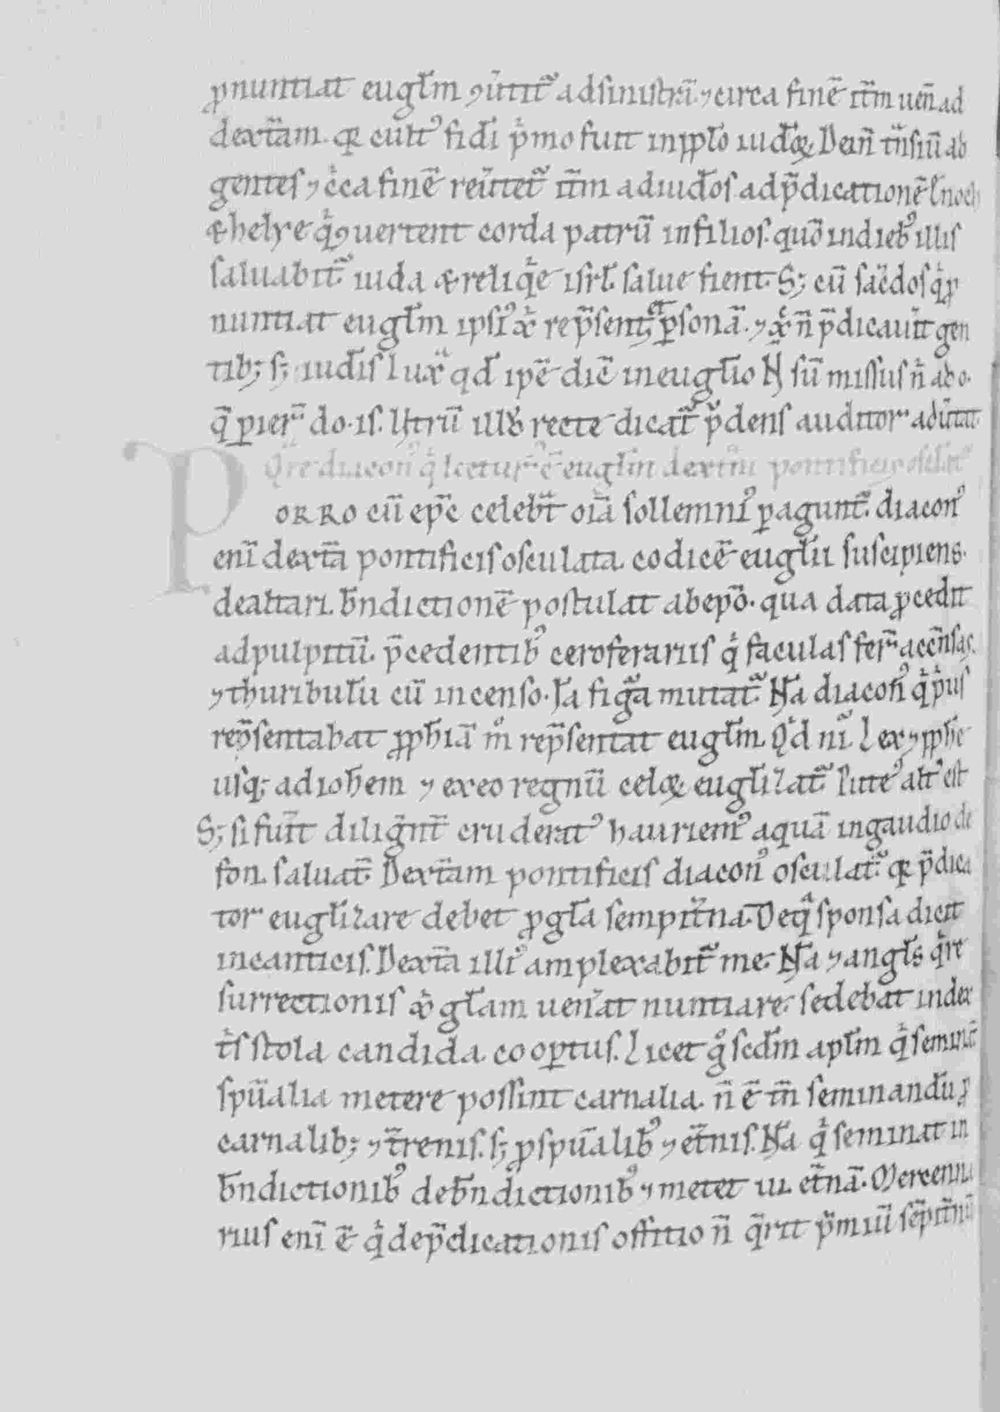 ꝓnuntiat eugl̄m ꝯũtit᷑ ad sinistrā. ⁊ circa finē it̄m uen̄ ad
dext̄am. qr̄ cult᷒ fidei p̾mo fuit in pp̄lo iud̄oꝝ. Dein̄ t̄nsiuit ab
gentes ⁊ c̾ca finē reũtet᷑ it̄m ad iud̄os ad p̄dicationē Enoch
& helye q̾ ꝯuertent corda patrū in filios. quō in dieb᷒ illis
saluabit᷑ iuda & reliq̾e isrl̄ salue fient. S; cū sac̄dos q̾ ꝓ
nuntiat eugl̄m ipsi᷒ xp̄i rep̄sent& ꝑsonā. ⁊ xp̄c n̄ p̄dicauit gen
tib; s; iud̄is iuxͣ qd̄ ipē dic̄ in eugl̄io N̄ sū missus n̄ ad o.
q̄ ꝑier̄ do. isr̄. Utrū illđ recte dicat᷑ p̾dens auditor aduertat.
Q̾re diacon᷒ q̾ lectur᷒ ē eugl̄m dext̄m pontificis osculat᷑
PORRO cū ep̄c celebrat oīa sollemnit᷑ ꝑagunt᷑. diacon᷒
enī dext̄a pontificis osculata. codicē eugl̄ii suscipiens.
de altari. bn̄dictionē postulat ab ep̄o. qua data ꝓcedit
ad pulpitū. p̄cedentib᷒ ceroferariis q̾ faculas fer̄ accensas.
⁊ thuribulū cū incenso. Ia figͣa mutat᷑. Nā diacon᷒ q̾ p̾us
rep̄sentabat ꝓph̄iā m̊ rep̄sentat eugl̄m. Q̾d nī. Lex ⁊ ꝓph̄e
usq; ad ioh̄em ⁊ ex eo regnū celoꝝ eugl̄izat᷑. Pute᷒ alt᷒ est
S; si fũit dilig̾nt᷑ eruderat᷒ hauriem᷒ aquā in gaudio de
fon. saluat̄. Dext̄am pontificis diacon᷒ osculat᷑. qr̄ p̄dica
tor eugl̄izare debet ꝓ gl̄a sempit̄na. De qͣ sponsa dicit
in canticis. Dext̄a illi᷒ amplexabit᷑ me. Nā ⁊ angl̄s q̾ re
surrectionis xp̄i gl̄am uen̾at nuntiare. sedebat in dex
t̾s stola candida. cooꝑtus. Licet g̊ sc̄dm apl̄m q̾ seminat
spūalia metere possint carnalia. n̄ ē tn̄ seminandū ꝓ
carnalib; ⁊ t̄renis. s; ꝓ spūalib᷒ ⁊ et̄nis. Nā q̾ seminat in
bn̄dictionib᷒ de bn̄dictionib᷒ ⁊ metet ui. et̄nā. Mercenna
rius enī ē q̾ de p̄dicationis offitio n̄ q̄rit p̄miū sēpit̄nū